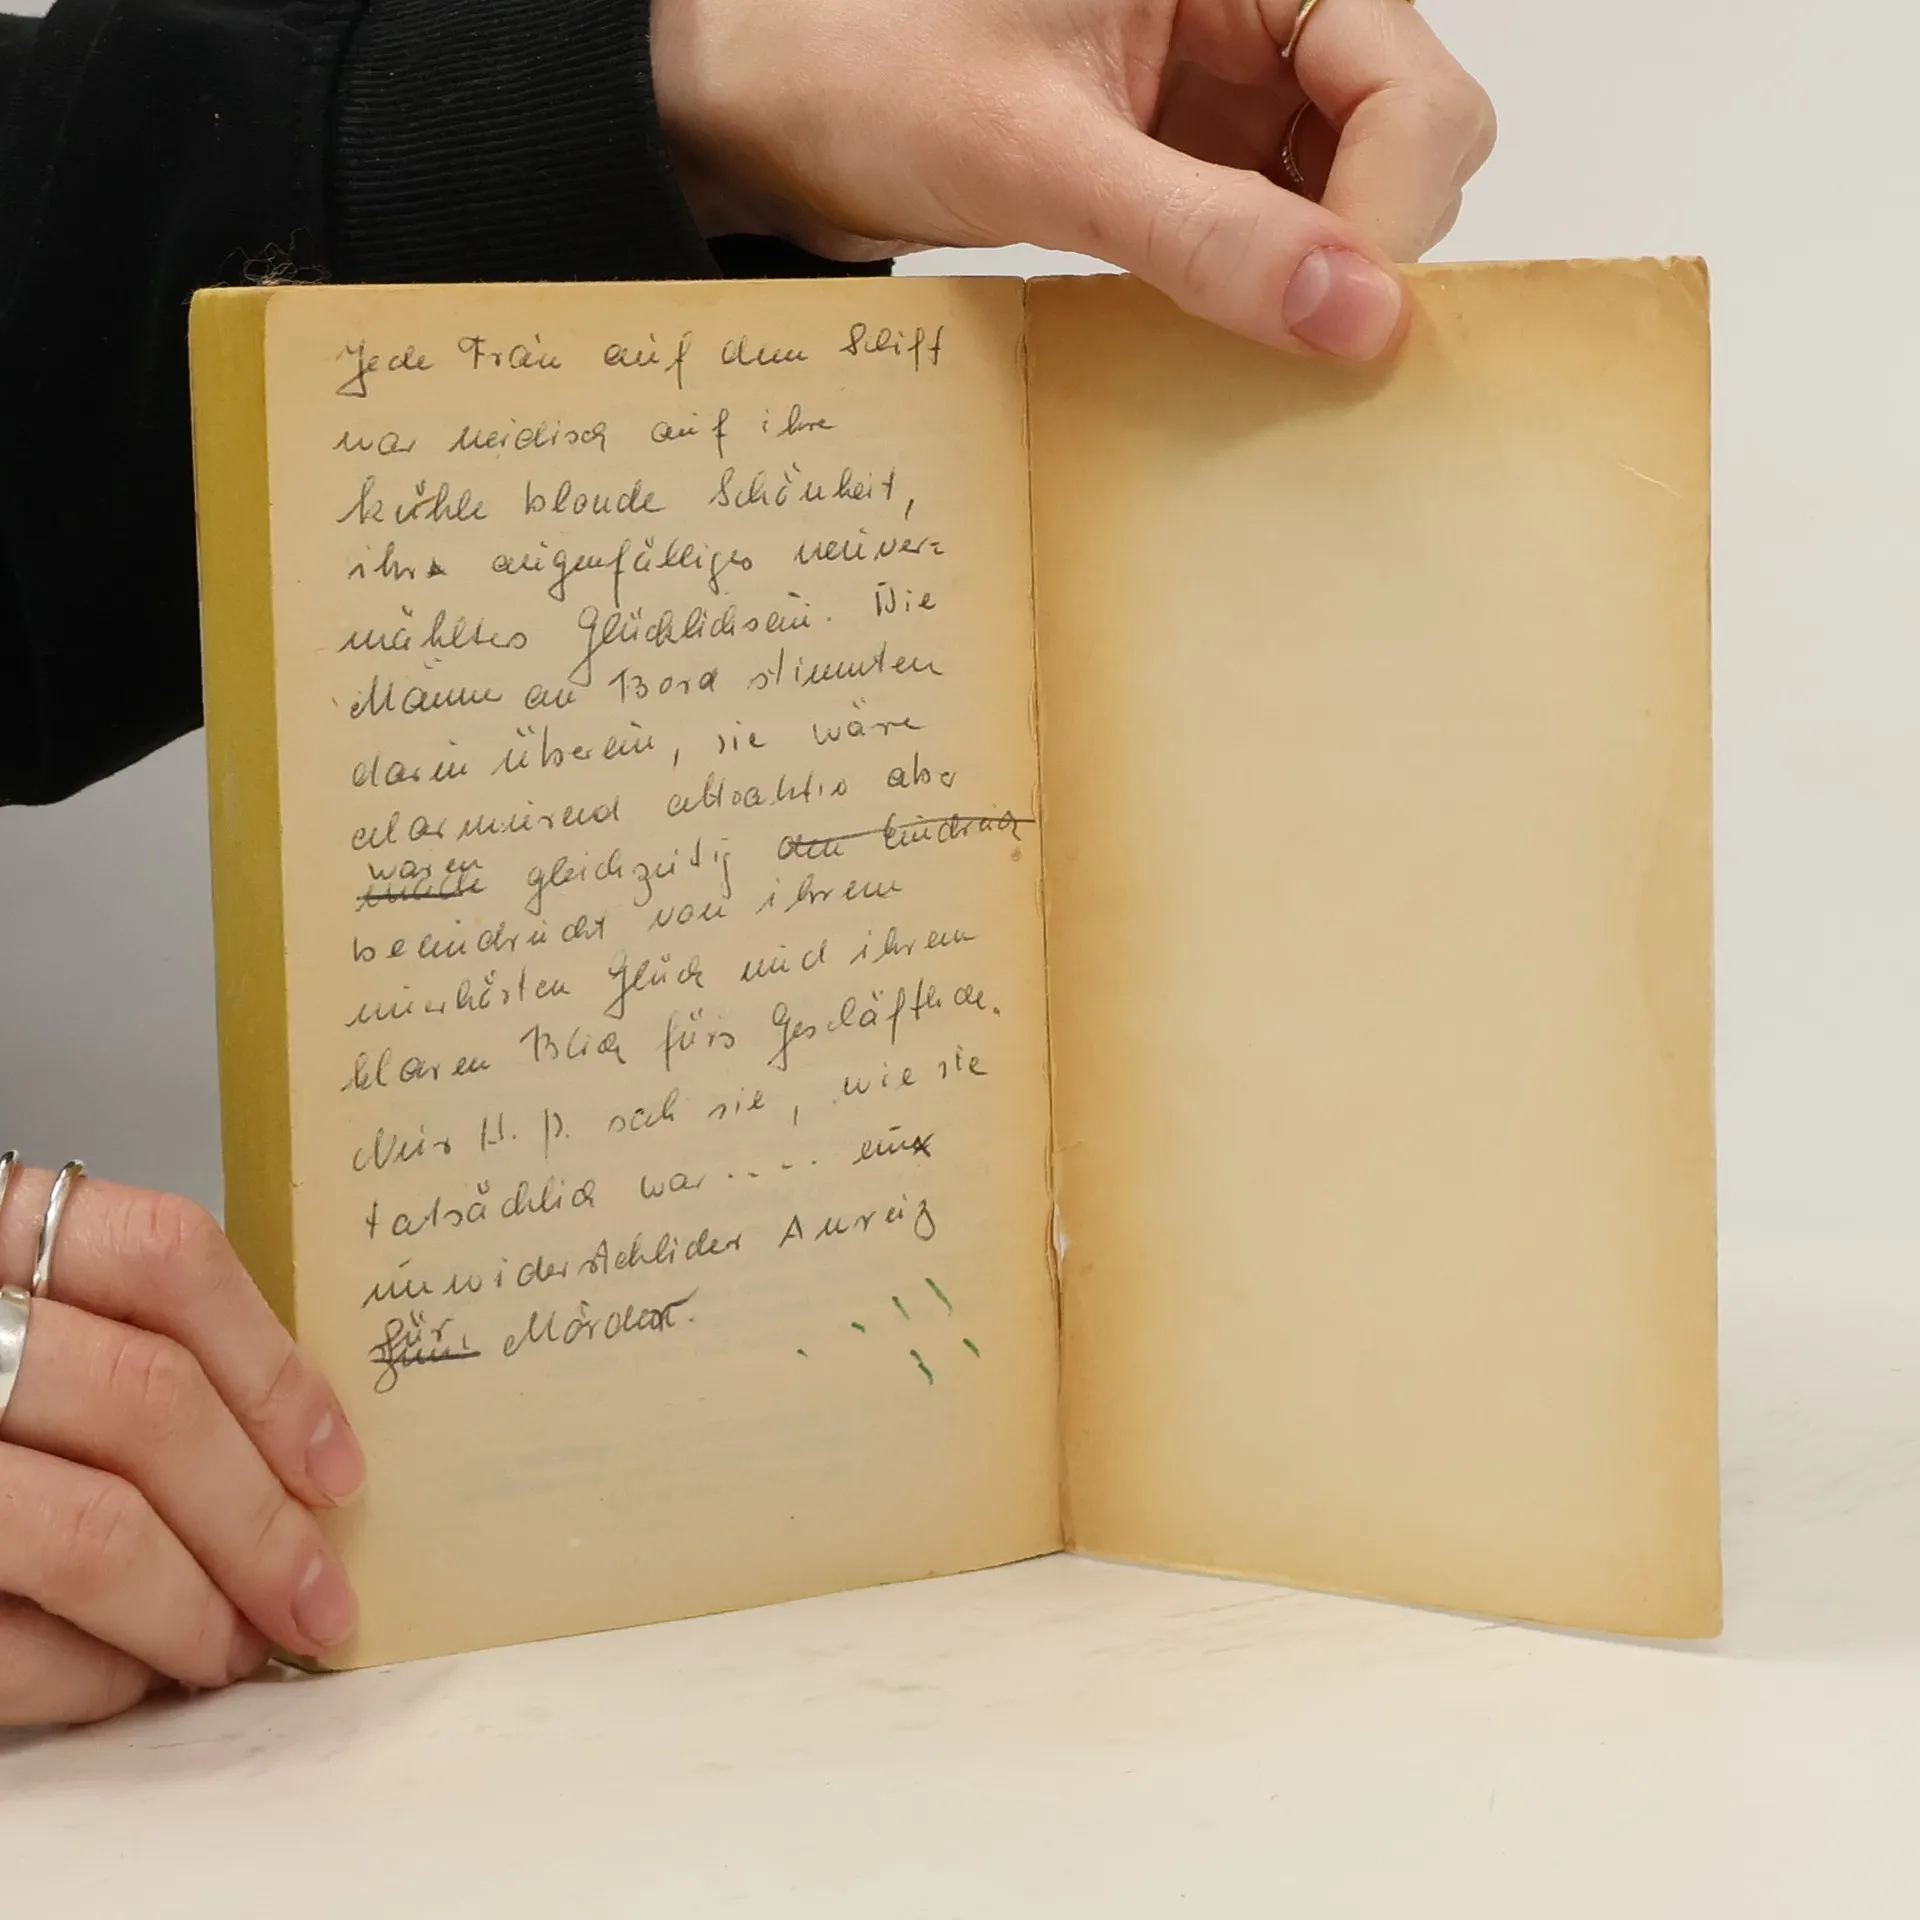 Jede Frau auf dem Schiff
war neidisch auf ihre
kühle blonde Schönheit,
ihr augenfälliges neuver=
mähltes Glücklichsein. Die
Männer an Bord stimmten
darin überein, sie wäre
alarmierend attraktiv aber
waren gleichzeitig den Eindruck
beeindruckt von ihrem
unerhörten Glück und ihrem
klaren Blick fürs Geschäftliche.
Nur H. P. sah sie, wie sie
tatsächlich war .... ein
unwiderstehlicher Anreiz
für Mörder.